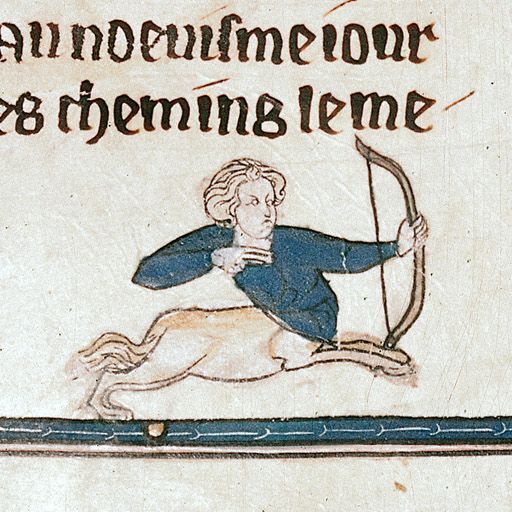 Au noeuiſme iour
es chemins le me